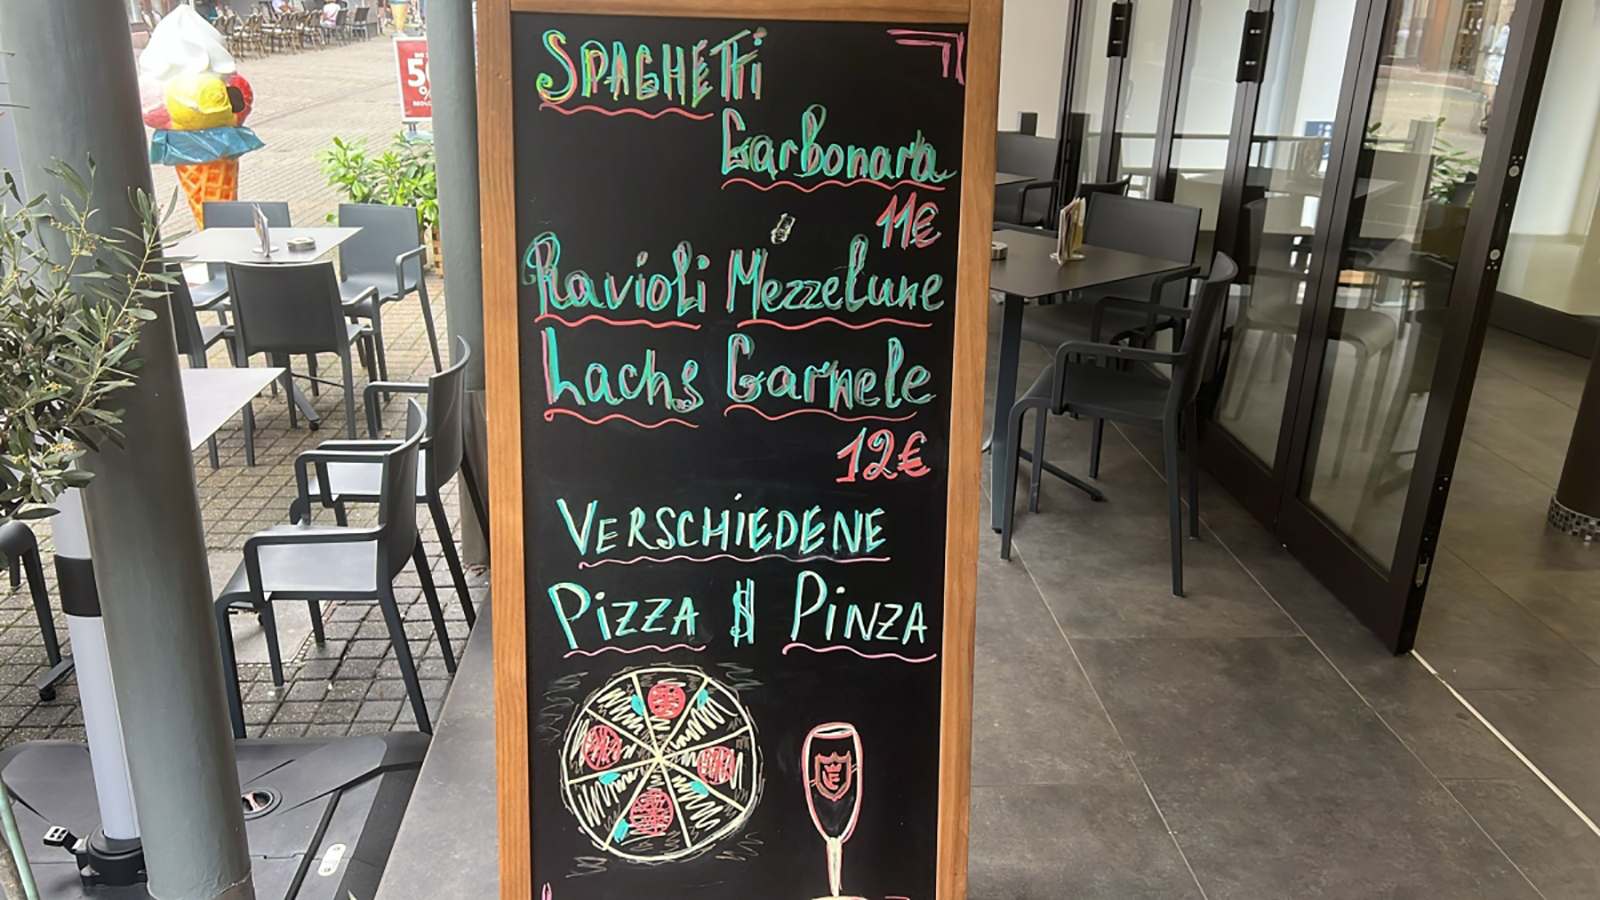 SPAGHETTi
Carbonara
11€
Ravioli Mezzelune
Lachs Garnele
12€
VERSCHiEDENE
PizzA & PiNZA